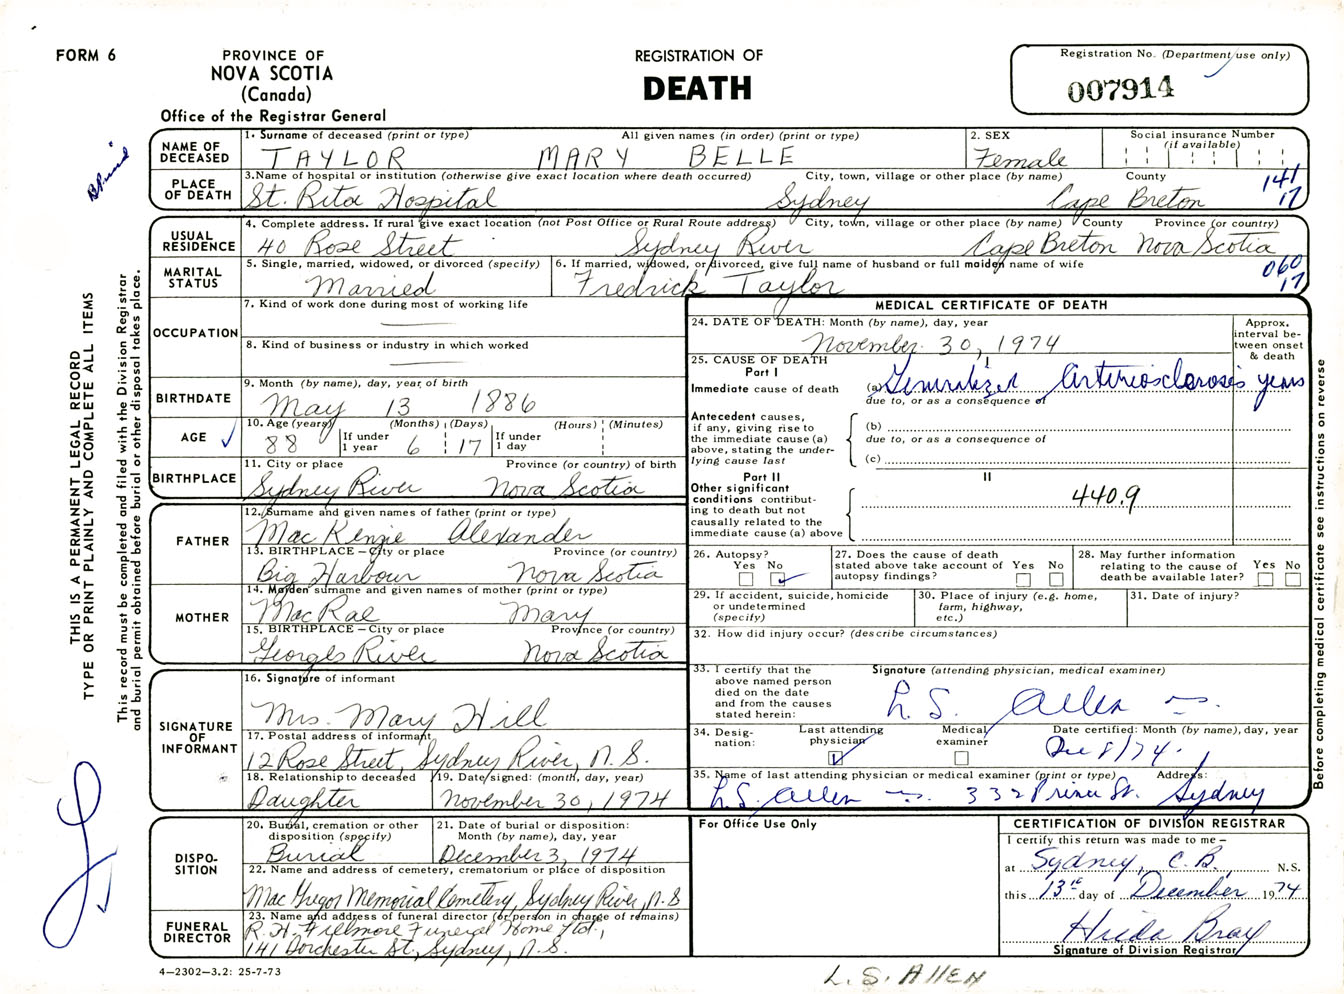 FORM 6
PROVINCE OF
NOVA SCOTIA
(Canada)
Office of the Registrar General
REGISTRATION OF
DEATH
Registration No. (Department use only)
007914
THIS IS A PERMANENT LEGAL RECORD
TYPE OR PRINT PLAINLY AND COMPLETE ALL ITEMS
This record must be completed and filed with the Division Registrar
and burial permit obtained before burial or other disposal takes place.
NAME OF
DECEASED
1. Surname of deceased (print or type) All given names (in order) (print or type)
TAYLOR MARY BELLE
2. SEX
Female
Social insurance Number
(if available)
PLACE
OF DEATH
3. Name of hospital or institution (otherwise give exact location where death occurred) City, town, village or other place (by name) County
St. Rita Hospital Sydney Cape Breton
141
17
USUAL
RESIDENCE
4. Complete address. If rural give exact location (not Post Office or Rural Route address) City, town, village or other place (by name) County Province (or country)
40 Rose Street Sydney River Cape Breton Nova Scotia
MARITAL
STATUS
5. Single, married, widowed, or divorced (specify)
Married
6. If married, widowed, or divorced, give full name of husband or full maiden name of wife
Fredrick Taylor
060
17
OCCUPATION
7. Kind of work done during most of working life
8. Kind of business or industry in which worked
BIRTHDATE
9. Month (by name), day, year of birth
May 13 1886
AGE
10. Age (years) (Months) (Days) (Hours) (Minutes)
88 If under 1 year 6 17 If under 1 day
BIRTHPLACE
11. City or place Province (or country) of birth
Sydney River Nova Scotia
FATHER
12. Surname and given names of father (print or type)
MacKenzie Alexander
13. BIRTHPLACE – City or place Province (or country)
Big Harbour Nova Scotia
MOTHER
14. Maiden surname and given names of mother (print or type)
MacRae Mary
15. BIRTHPLACE – City or place Province (or country)
Georges River Nova Scotia
SIGNATURE
OF
INFORMANT
16. Signature of informant
Mrs. Mary Hill
17. Postal address of informant
12 Rose Street, Sydney River, N.S.
18. Relationship to deceased
Daughter
19. Date signed: (month, day, year)
November 30, 1974
DISPO-
SITION
20. Burial, cremation or other
disposition (specify)
Burial
21. Date of burial or disposition:
Month (by name), day, year
December 3, 1974
22. Name and address of cemetery, crematorium or place of disposition
MacGregor Memorial Cemetery, Sydney River, N.S
FUNERAL
DIRECTOR
23. Name and address of funeral director (or person in charge of remains)
R.H. Fillmore Funeral Home Ltd.,
141 Dorchester St., Sydney, N.S.
4–2302–3.2: 25-7-73
MEDICAL CERTIFICATE OF DEATH
24. DATE OF DEATH: Month (by name), day, year
November 30, 1974
Approx.
interval be-
tween onset
& death
25. CAUSE OF DEATH
Part I
I
Immediate cause of death
(a) Generalized Arteriosclerosis years
due to, or as a consequence of
Antecedent causes,
if any, giving rise to
the immediate cause (a)
above, stating the under-
lying cause last
(b)
due to, or as a consequence of
(c)
Part II
II
Other significant
conditions contribut-
ing to death but not
causally related to the
immediate cause (a) above
440.9
26. Autopsy?
Yes No
27. Does the cause of death
stated above take account of
autopsy findings?
Yes No
28. May further information
relating to the cause of
death be available later?
Yes No
29. If accident, suicide, homicide
or undetermined
(specify)
30. Place of injury (e.g. home,
farm, highway,
etc.)
31. Date of injury?
32. How did injury occur? (describe circumstances)
33. I certify that the
above named person
died on the date
and from the causes
stated herein:
Signature (attending physician, medical examiner)
L.S. Allen
34. Desig-
nation:
Last attending
physician
Medical
examiner
Date certified: Month (by name), day, year
Dec 8/74.
35. Name of last attending physician or medical examiner (print or type) Address:
L.S. Allen 332 Prince St. Sydney
Before completing medical certificate see instructions on reverse
For Office Use Only
CERTIFICATION OF DIVISION REGISTRAR
I certify this return was made to me –
at Sydney, C.B. N.S.
this 13th day of December 1974
Hilda Bray
Signature of Division Registrar
L.S. ALLEN